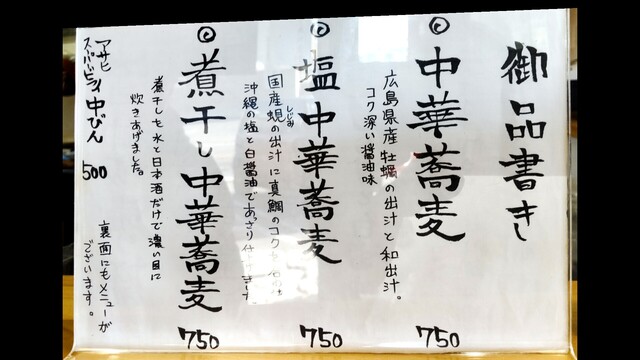 御品書き
◎中華蕎麦 750
広島県産牡蠣の出汁と和出汁。
コク深い醤油味
◎塩中華蕎麦 750
国産蜆の出汁に真鯛のコク
しじみ
沖縄の塩と白醤油であっさり仕
◎煮干し中華蕎麦 750
煮干しを水と日本酒だけで濃い目に
炊きあげました。
アサヒ
スーパードライ中びん 500
裏面にもメニューが
ございます。